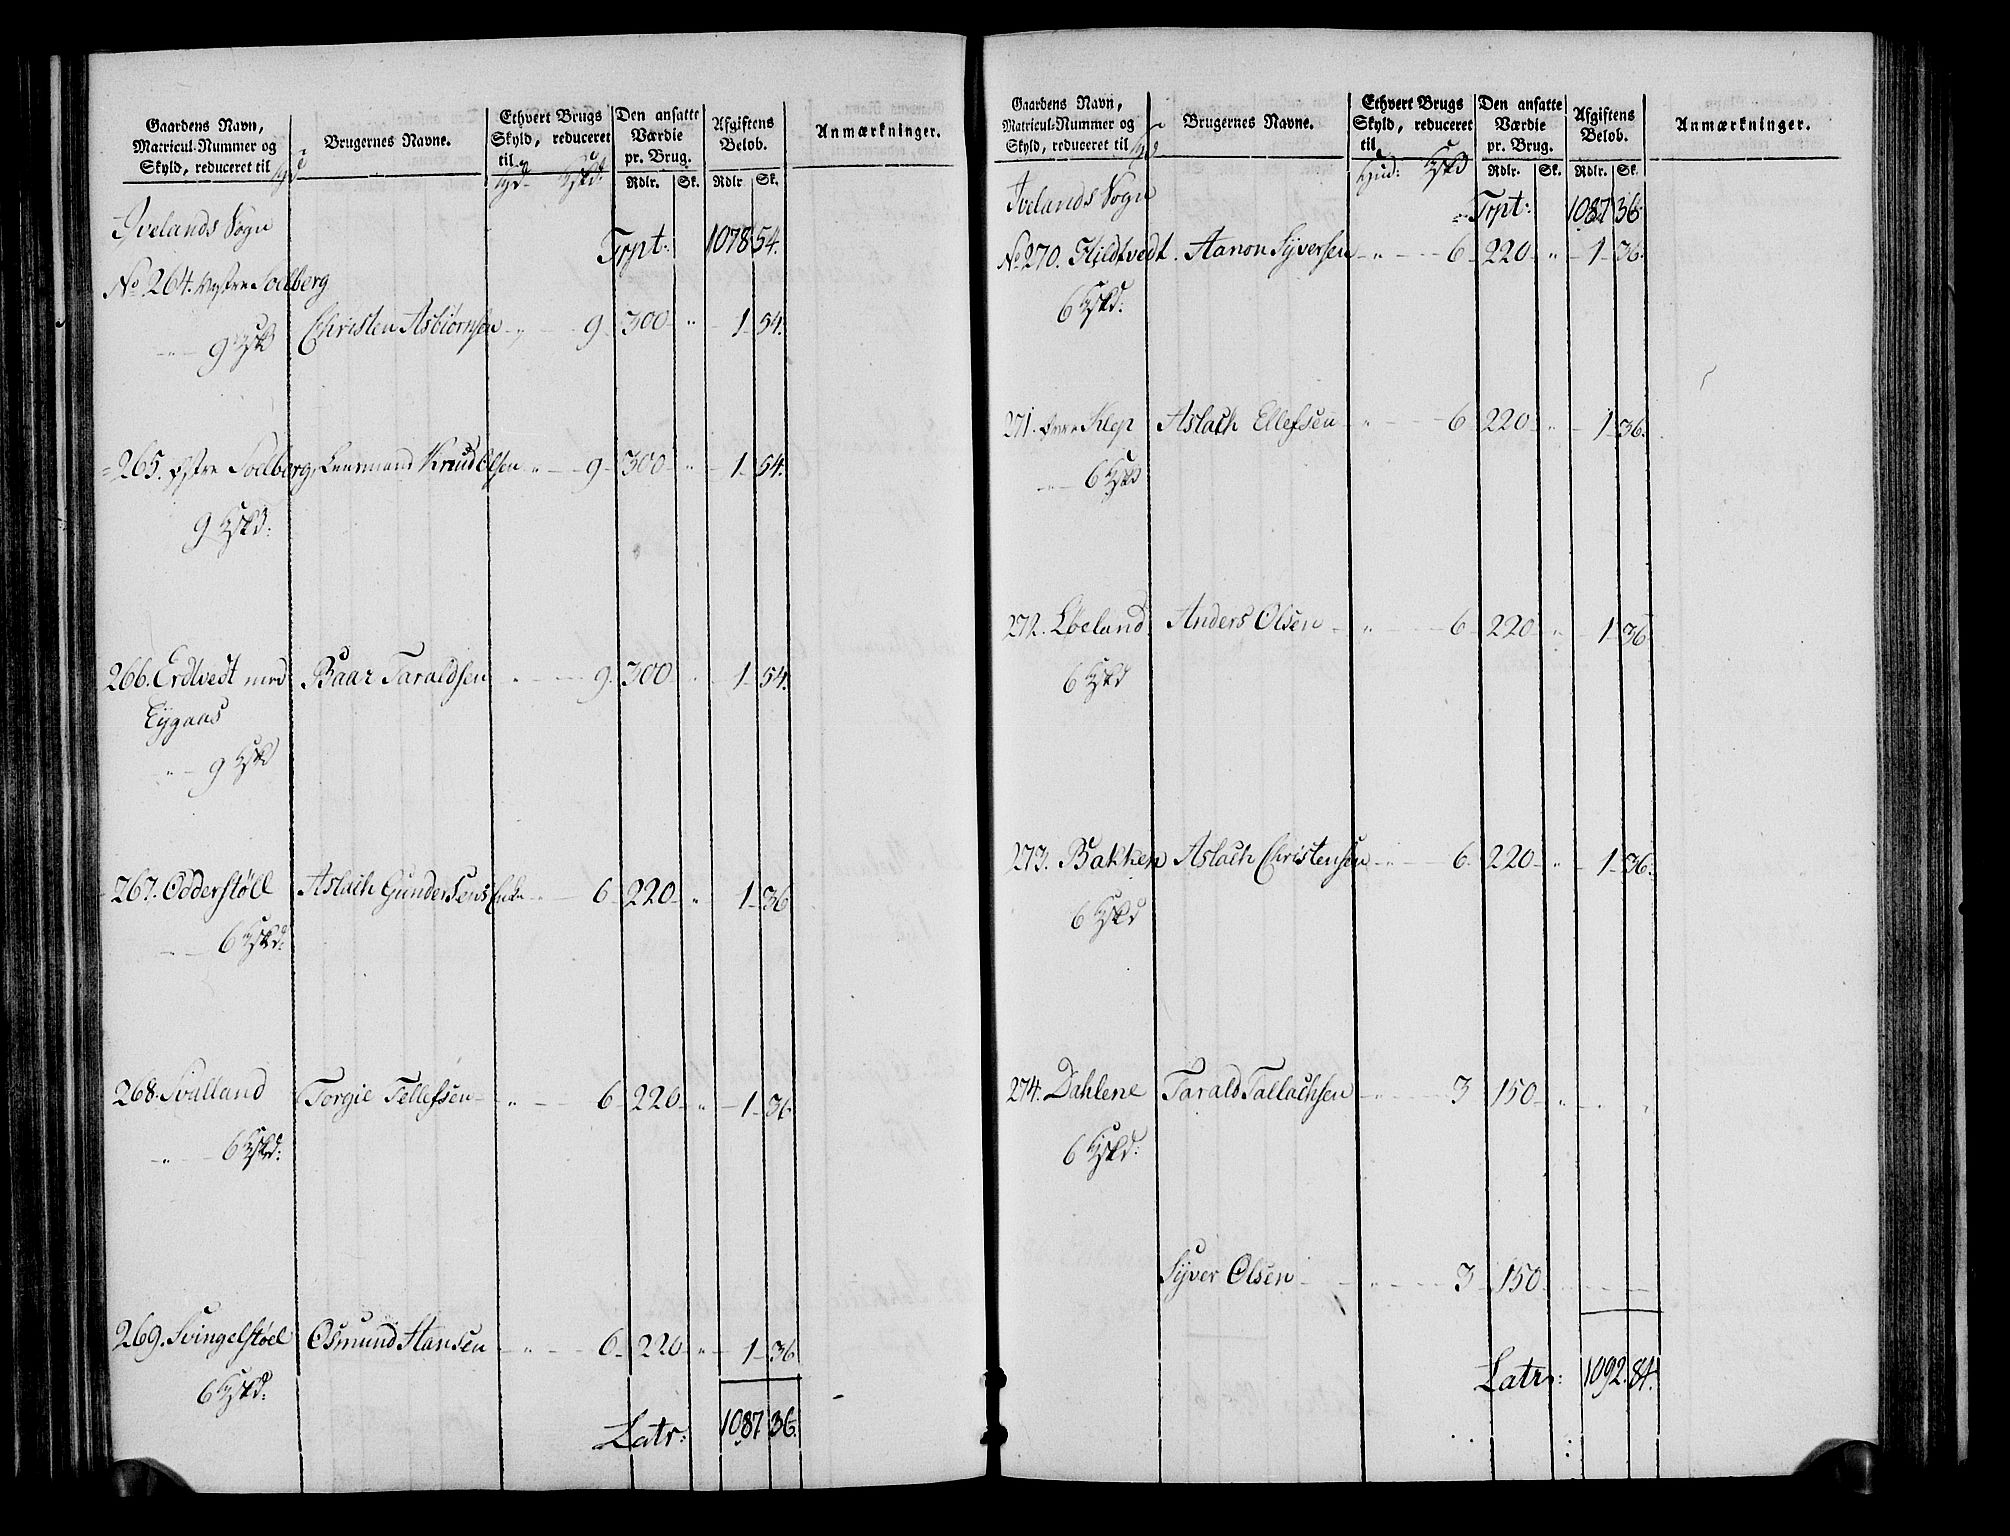 Gaardens Navn,
Matricul-Nummer og
Skyld, reduceret til
Brugernes Navne.
Ethvert Brugs
Skyld, reduceret
til
Den ansatte
Værdie
pr. Brug.
Afgiftens
Beløb.
Anmærkninger.
Rdlr. Sk. Rdlr Sk.
Ivelands Sogn
Trpt: 1078 54.
No 264. Vestre Solberg
9 Christen Asbiørnsen 9 300 " 1 54.
265. Østre Solberg, Lensmand Knud Olsen " 9 300 " 1 54.
9
266. Erdtvedt med Baar Taraldsen " 9 300 " 1 54.
Eygaas
" 9
267. Odderstöll Aslach Gundersens Enke " 6 220 " 1 36
6
268. Svalland Torgie Tellefsen " 6 220 " 1 36
" 6
269. Svingelstøel Osmund Hansen " 6 220 " 1 36
6
Latr: 1087 36.
Gaardens Navn,
Matricul-Nummer og
Skyld, reduceret til
Brugernes Navne.
Ethvert Brugs
Skyld, reduceret
til
Den ansatte
Værdie
pr. Brug.
Afgiftens
Beløb.
Anmærkninger.
Rdlr. Sk. Rdlr. Sk.
Ivelands Sogn
Trpt: 1087 36.
No 270. Hildtvedt. Aanon Syversen " 6 220 " 1 36.
6
271. Øvre Klep Aslach Ellefsen " 6 220 " 1 36.
" 6
272. Løeland Anders Olsen " 6 220 " 1 36
6
273. Bakken Aslach Christensen " 6 220 " 1 36.
6
274. Dahlene Tarald Tallachsen " 3 150 "
6
Syver Olsen " 3 150
Latr: 1092. 84.